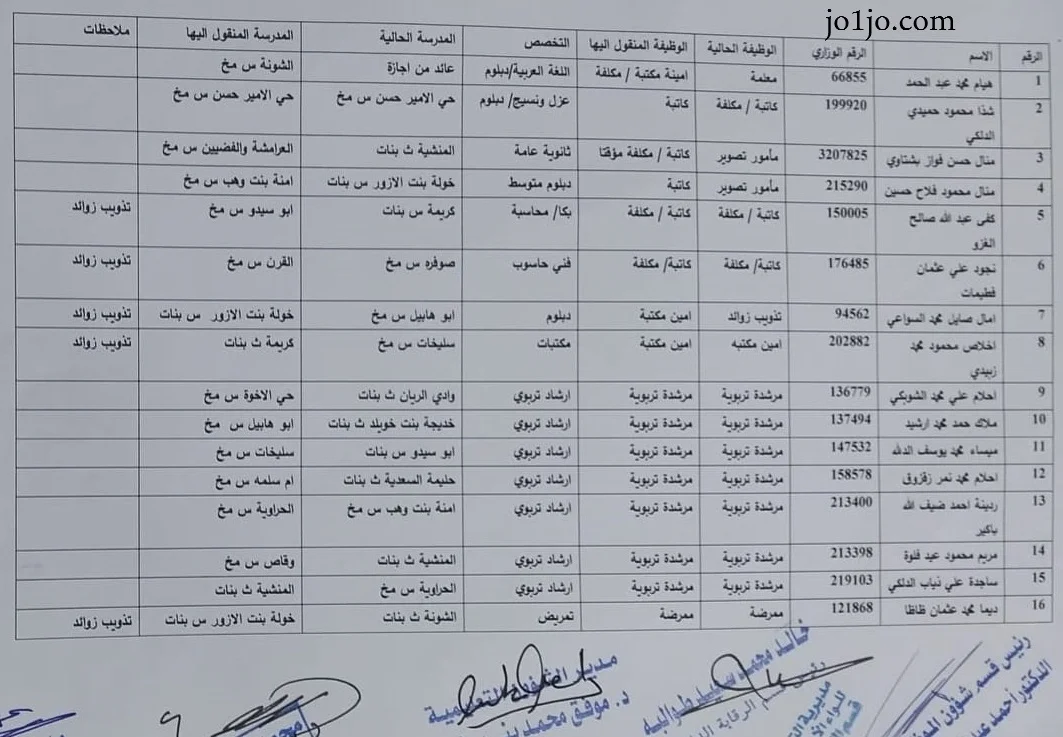 jo1jo.com
الرقم الاسم الرقم الوزاري الوظيفة الحالية الوظيفة المنقول اليها التخصص المدرسة الحالية المدرسة المنقول اليها ملاحظات
1 هيام محمد عبد الحمد 66855 معلمة امينة مكتبة / مكلفة اللغة العربية/دبلوم عائد من اجازة الشونة س مخ
2 شذا محمود حميدي 199920 كاتبة / مكلفة كاتبة غزل ونسيج/ دبلوم حي الامير حسن س مخ حي الامير حسن س مخ
الدلكي
3 منال حسن فواز بشتاوي 3207825 مأمور تصوير كاتبة / مكلفة مؤقتا ثانوية عامة المنشية ث بنات العرامشة والفضيين س مخ
4 منال محمود فلاح حسين 215290 مأمور تصوير كاتبة دبلوم متوسط خولة بنت الازور س بنات امنة بنت وهب س مخ
5 كفى عبد الله صالح 150005 كاتبة / مكلفة كاتبة / مكلفة بكا/ محاسبة كريمة س بنات ابو سيدو س مخ تذويب زوائد
الغزو
6 نجود علي عثمان 176485 كاتبة/ مكلفة كاتبة/ مكلفة فني حاسوب صوفره س مخ القرن س مخ تذويب زوائد
فطيمات
7 امال صايل محمد السواعي 94562 تذويب زوائد امين مكتبة دبلوم ابو هابيل س مخ خولة بنت الازور س بنات تذويب زوائد
8 اخلاص محمود محمد 202882 امين مكتبه امين مكتبة مكتبات سليخات س مخ كريمة ث بنات تذويب زوائد
زبيدي
9 احلام علي محمد الشوبكي 136779 مرشدة تربوية مرشدة تربوية ارشاد تربوي وادي الريان ث بنات حي الاخوة س مخ
10 ملاك حمد محمد ارشيد 137494 مرشدة تربوية مرشدة تربوية ارشاد تربوي خديجة بنت خويلد ث بنات ابو هابيل س مخ
11 ميساء محمد يوسف الدلله 147532 مرشدة تربوية مرشدة تربوية ارشاد تربوي ابو سيدو س بنات سليخات س مخ
12 احلام محمد نمر زقزوق 158578 مرشدة تربوية مرشدة تربوية ارشاد تربوي حليمة السعدية ث بنات ام سلمه س مخ
13 ردينة احمد ضيف الله 213400 مرشدة تربوية مرشدة تربوية ارشاد تربوي امنة بنت وهب س مخ الحراوية س مخ
باكير
14 مريم محمود عيد فلوة 213398 مرشدة تربوية مرشدة تربوية ارشاد تربوي المنشية ث بنات وقاص س مخ
15 ساجدة علي ذياب الدلكي 219103 مرشدة تربوية مرشدة تربوية ارشاد تربوي الحراوية س مخ المنشية ث بنات
16 ديما محمد عثمان ظاظا 121868 ممرضة ممرضة تمريض الشونة ث بنات خولة بنت الازور س بنات تذويب زوائد
رئيس قسم شؤون
الدكتور أحمد
مديرية
خالد محمد طوالبه
رئيس قسم الرقابة
مدير الشؤون التعليمية
د. موفق محمد